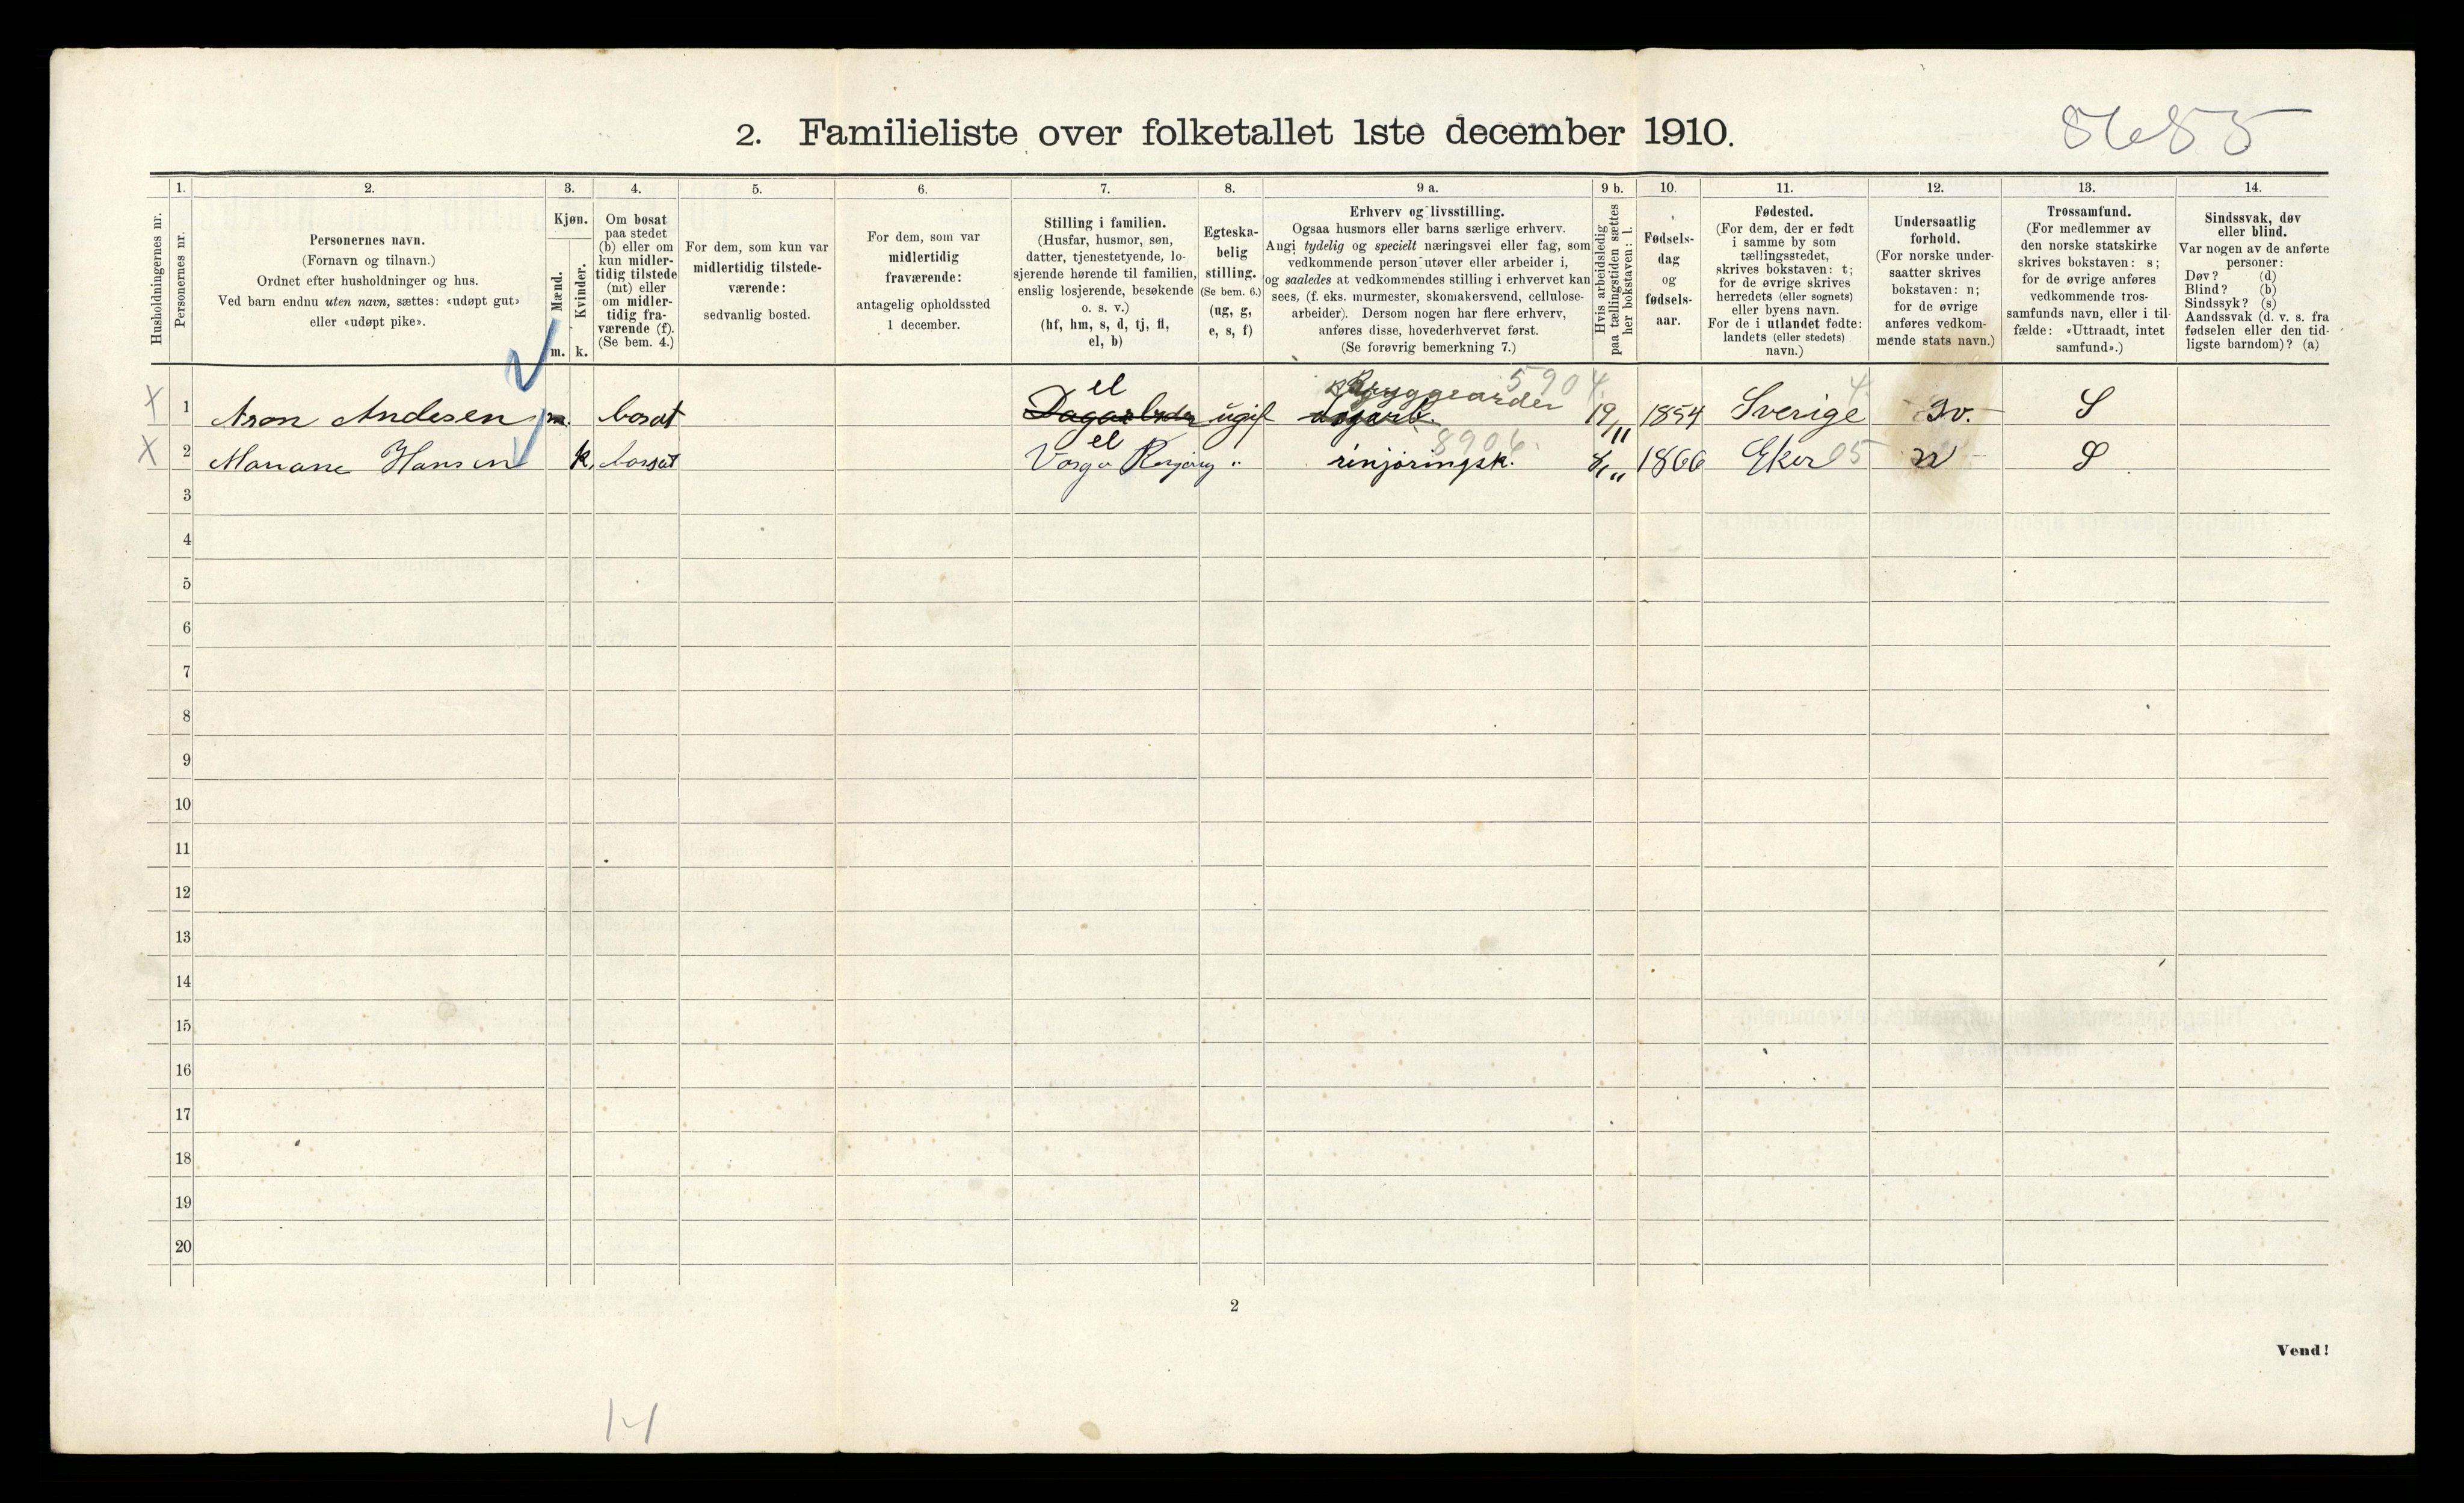 8685
2. Familieliste over folketallet 1ste december 1910.
1. 2. 3. 4. 5. 6. 7. 8. 9 a. 9 b. 10. 11. 12. 13. 14.
Husholdningernes nr.
Personernes nr.
Personernes navn.
(Fornavn og tilnavn.)
Ordnet efter husholdninger og hus.
Ved barn endnu uten navn, sættes: «udøpt gut»
eller «udøpt pike».
Kjøn.
Mænd.
Kvinder.
m. k.
Om bosat
paa stedet
(b) eller om
kun midler-
tidig tilstede
(mt) eller
om midler-
tidig fra-
værende (f).
(Se bem. 4.)
For dem, som kun var
midlertidig tilstede-
værende:
sedvanlig bosted.
For dem, som var
midlertidig
fraværende:
antagelig opholdssted
1 december.
Stilling i familien.
(Husfar, husmor, søn,
datter, tjenestetyende, lo-
sjerende hørende til familien,
enslig losjerende, besøkende
o. s. v.)
(hf, hm, s, d, tj, fl,
el, b)
Egteska-
belig
stilling.
(Se bem. 6.)
(ug, g,
e, s, f)
Erhverv og livsstilling.
Ogsaa husmors eller barns særlige erhverv.
Angi tydelig og specielt næringsvei eller fag, som
vedkommende person utøver eller arbeider i,
og saaledes at vedkommendes stilling i erhvervet kan
sees, (f. eks. murmester, skomakersvend, cellulose-
arbeider). Dersom nogen har flere erhverv,
anføres disse, hovederhvervet først.
(Se forøvrig bemerkning 7.)
Hvis arbeidsledig
paa tællingstiden sættes
her bokstaven: l.
Fødsels-
dag
og
fødsels-
aar.
Fødested.
(For dem, der er født
i samme by som
tællingsstedet,
skrives bokstaven: t;
for de øvrige skrives
herredets (eller sognets)
eller byens navn.
For de i utlandet fødte:
landets (eller stedets)
navn.)
Undersaatlig
forhold.
(For norske under-
saatter skrives
bokstaven: n;
for de øvrige
anføres vedkom-
mende stats navn.)
Trossamfund.
(For medlemmer av
den norske statskirke
skrives bokstaven: s;
for de øvrige anføres
vedkommende tros-
samfunds navn, eller i til-
fælde: «Uttraadt, intet
samfund».)
Sindssvak, døv
eller blind.
Var nogen av de anførte
personer:
Døv? (d)
Blind? (b)
Sindssyk? (s)
Aandssvak (d. v. s. fra
fødselen eller den tid-
ligste barndom)? (a)
el 5904.
X 1 Aron Andesen m. bosat ugift 19/11 1854 Sverige 4. Sv. S
el 8906.
X 2 Mariane Hansen k. bosat " 1866 Eker 05 n S
3
4
5
6
7
8
9
10
11
12
13
14
15
16
17
18
19
20
2
Vend!
14